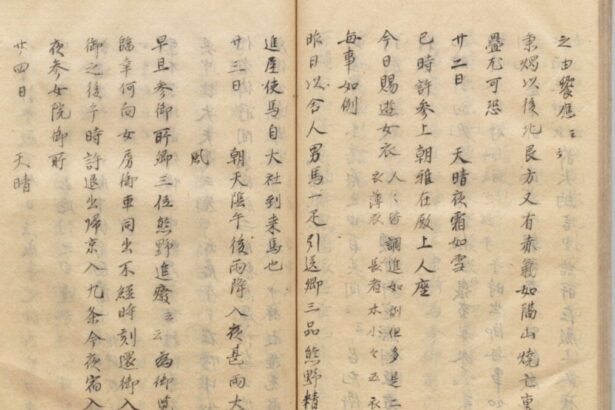 之由饗應云々
秉燭以後北艮方又有赤氣如隔山燒亡重
疊尤可恐
廿二日　天晴夜霜如雪
巳時許參上朝雅在殿上人座
今日賜遊女衣 人々皆調進如例但多是二
衣薄衣　長者木小々五衣
每事如例
昨日以令人男馬一疋引送卿三品熊野精
進屋使馬自大社到来馬也
廿三日　朝天陰午後雨降入夜甚雨大
風
早旦參御所卿三位熊野進發云々為御
臨幸何向女房御車同出不經時刻還御入
御之後午時許退出帰京入九条今夜宿入
夜参女院御所
廿四日　天晴